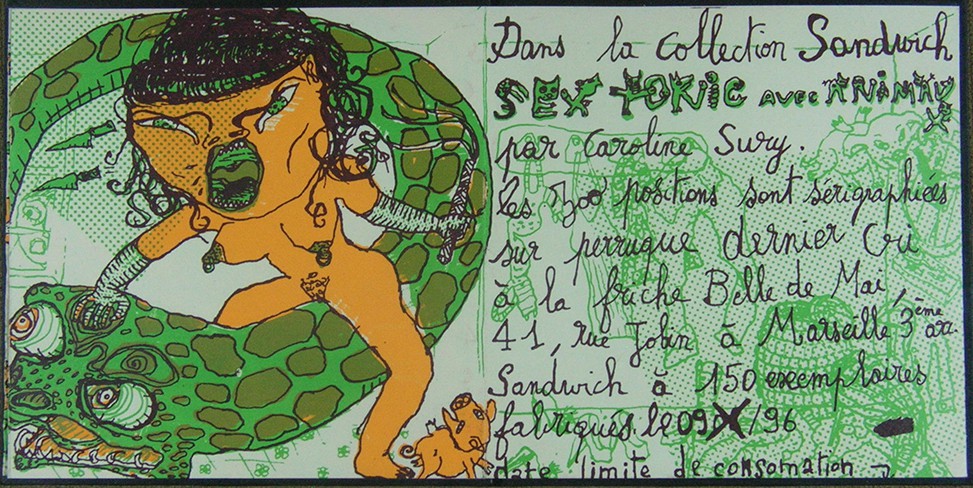 Dans la collection Sandwich
SEX TOXIC AVEC ANIMAUX
par Caroline Sury.
les 500 positions sont sérigraphiées
sur perruque dernier Cri
à la friche Belle de Mai,
41, rue Jobin à Marseille 3ème arr.
Sandwich à 150 exemplaires
fabriqués le 09/X/96
date limite de consomation →